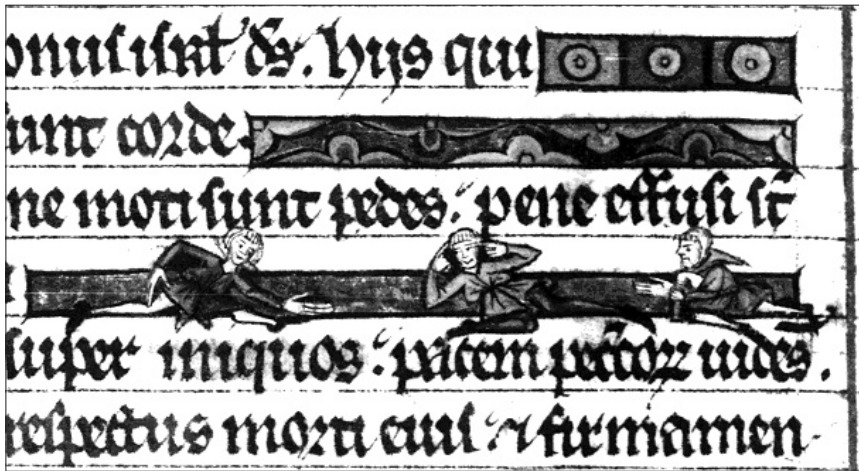 onus isrł ds. hijs qui
sunt corde.
ne moti sunt pedes. pene effusi st̄
super iniquos. pacem peccͦꝝ uides.
respectus morti eius. ⁊ firmamen